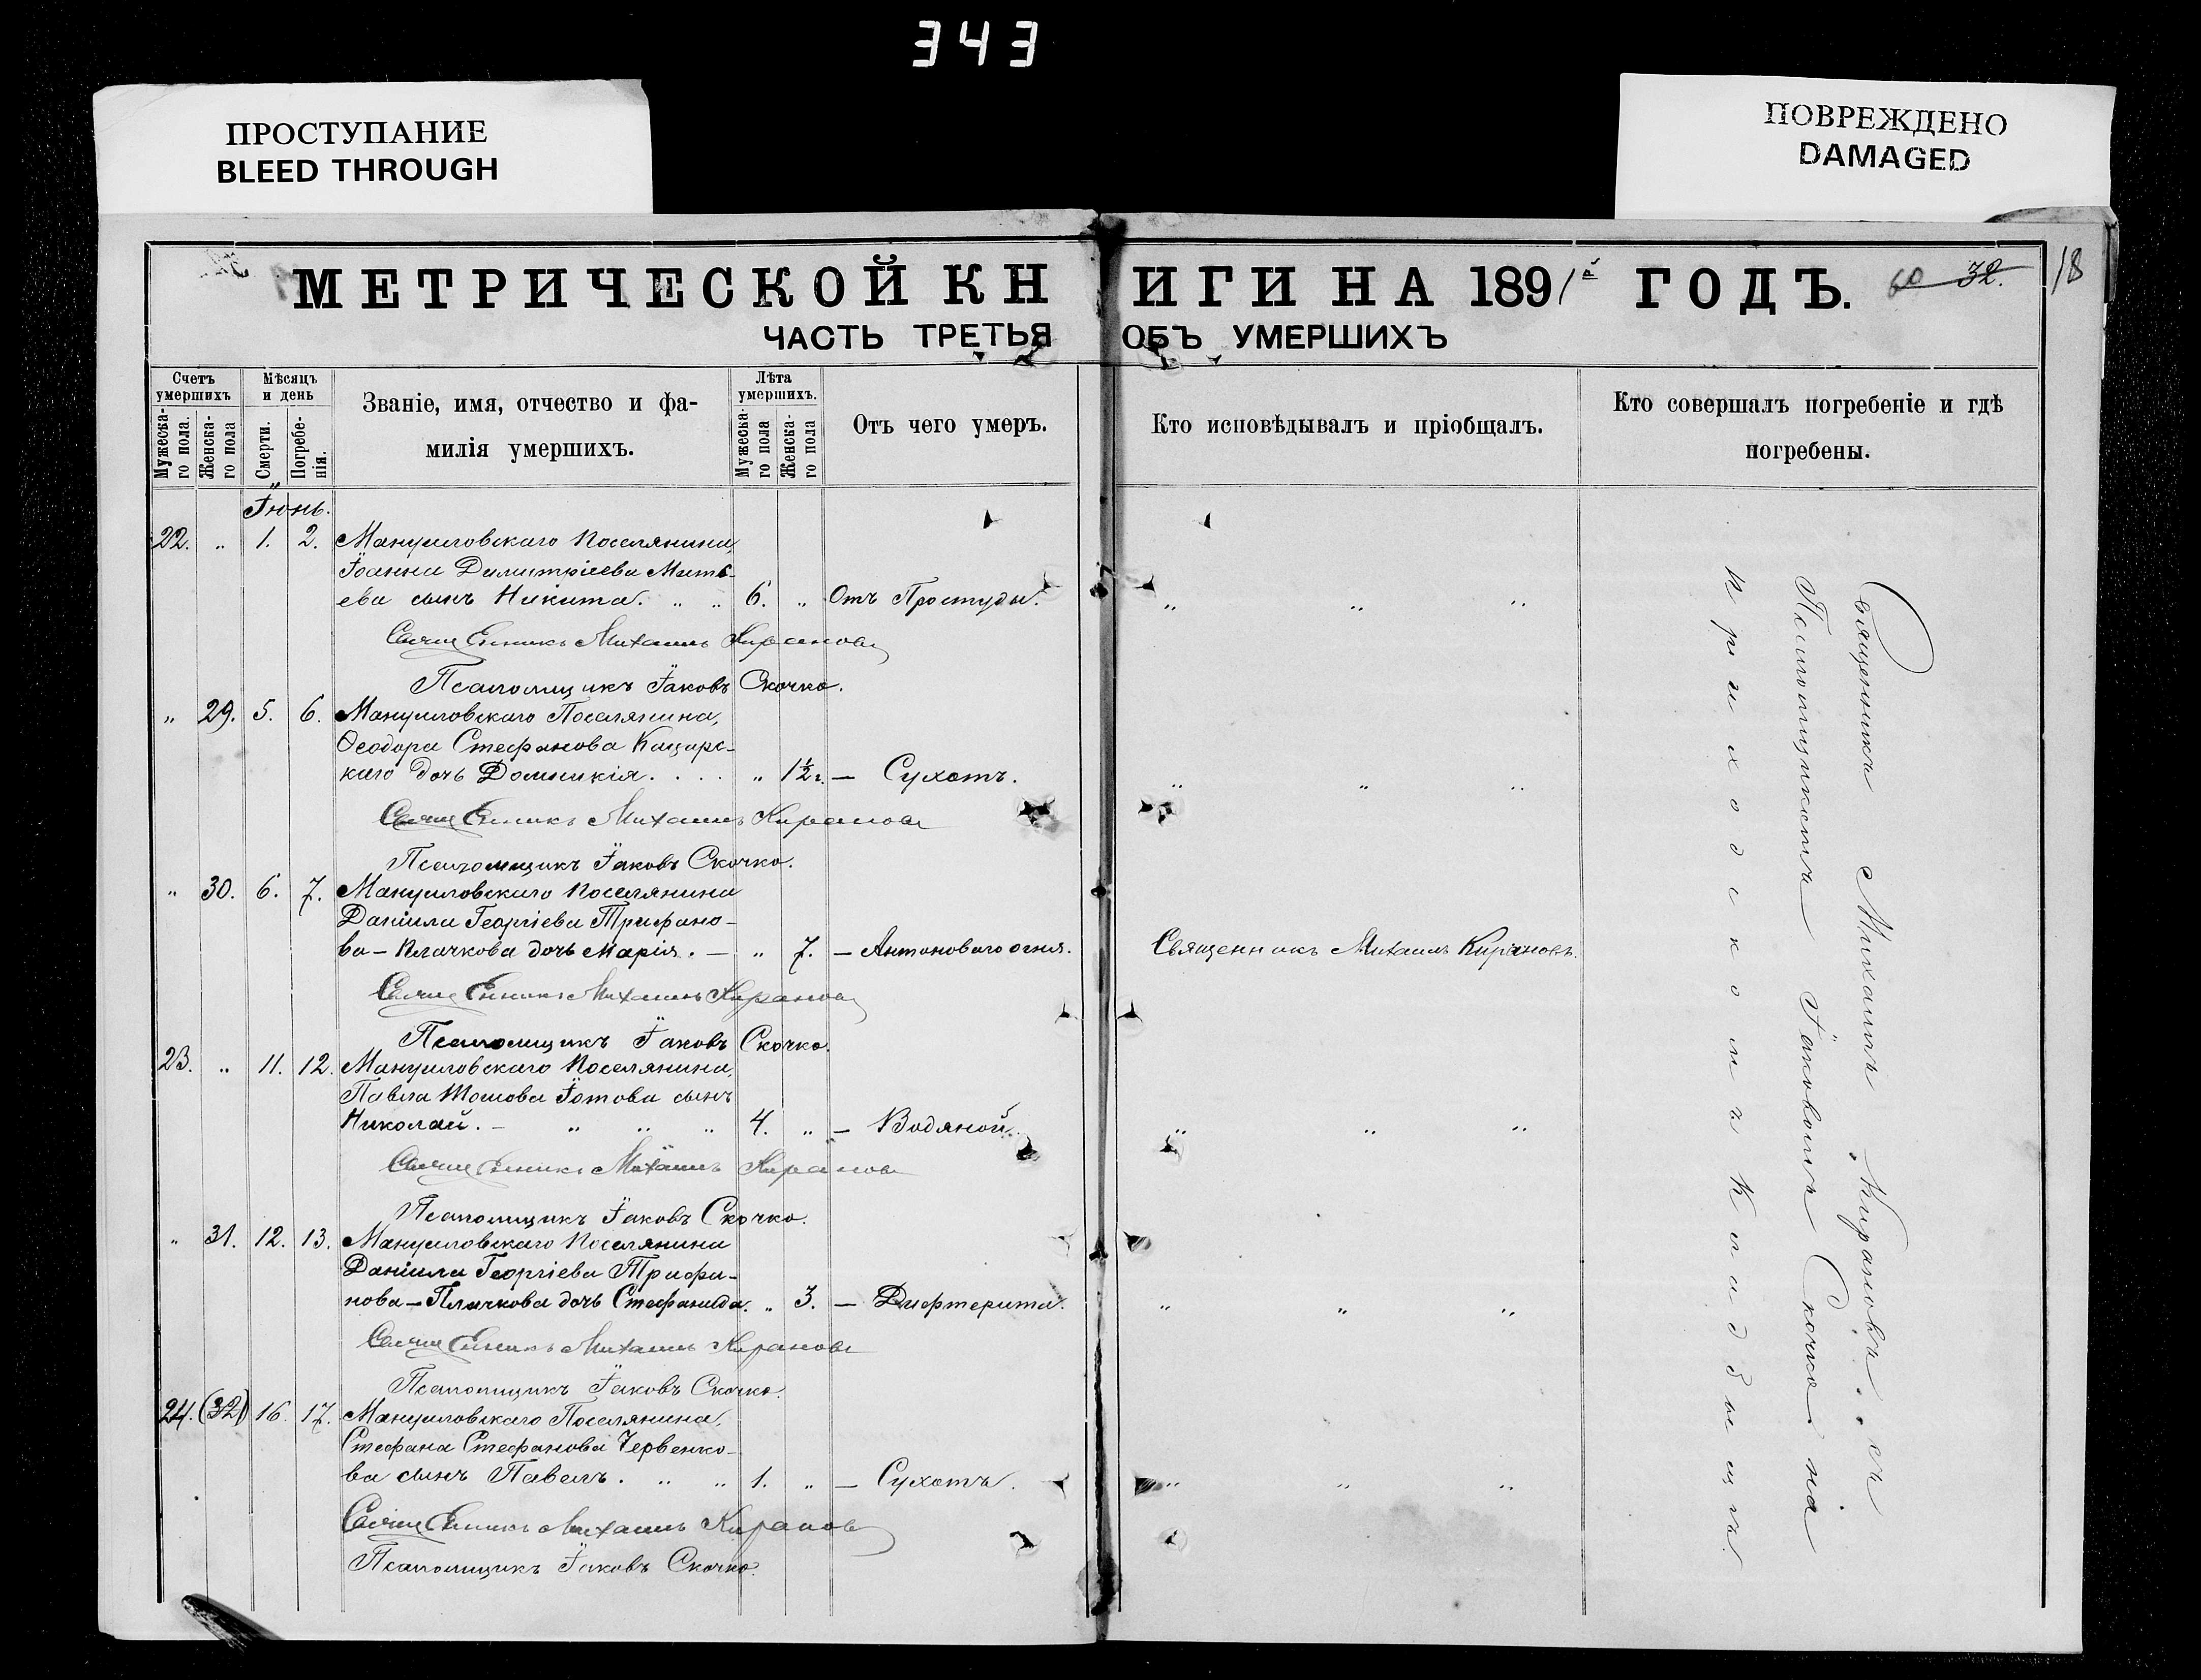 343
ПРОСТУПАНИЕ
BLEED THROUGH
ПОВРЕЖДЕНО
DAMAGED
МЕТРИЧЕСКОЙ КНИГИ НА 1891й ГОДЪ.
60 32.
18
ЧАСТЬ ТРЕТЬЯ ОБЪ УМЕРШИХЪ
Счетъ умершихъ
Мужеска-го пола.
Женска-го пола
Мѣсяцъ и день
Смерти.
Погребе-нія.
Званіе, имя, отчество и фа-
милія умершихъ.
Лѣта умершихъ.
Мужеска-го пола
Женска-го пола
Отъ чего умеръ.
Кто исповѣдывалъ и пріобщалъ.
Кто совершалъ погребеніе и гдѣ
погребены.
Іюнь.
22. „ 1. 2. Мануиловскаго Поселянина,
Іоанна Димитріева Мить-
ева сынъ Никита. „ „ 6. „ Отъ Простуды. „ „ „
Священникъ Михаилъ Кирановъ
Псаломщикъ Іаковъ Скочко.
„ 29. 5. 6. Мануиловскаго Поселянина,
Ѳеодора Стефанова Кацарс-
каго дочь Домникія. . . . „ 1½ г. — Сухотъ. „ „ „
Священникъ Михаилъ Кирановъ
Псаломщикъ Іаковъ Скочко.
„ 30. 6. 7. Мануиловскаго Поселянина
Даніила Георгіева Трифано-
ва-Плачкова дочь Марія. — „ 7. — Антонового огня. Священникъ Михаилъ Кирановъ.
Священникъ Михаилъ Кирановъ
Псаломщикъ Іаковъ Скочко.
23. „ 11. 12. Мануиловскаго Поселянина,
Павла Іотова сынъ
Николай. — „ „ „ 4. „ — Водяной. „ „ „
Священникъ Михаилъ Кирановъ
Псаломщикъ Іаковъ Скочко.
„ 31. 12. 13. Мануиловскаго Поселянина
Даніила Георгіева Трифа-
нова-Плачкова дочь Стефанида. „ 3. — Дифтерита. „ „ „
Священникъ Михаилъ Кирановъ
Псаломщикъ Іаковъ Скочко.
24. (32) 16. 17. Мануиловскаго Поселянина,
Стефана Стефанова Червенко-
ва сынъ Павелъ. „ „ 1. „ — Сухотъ. „ „ „
Священникъ Михаилъ Кирановъ
Псаломщикъ Іаковъ Скочко.
Священникъ Михаилъ Кирановъ . съ
Псаломщикомъ Іаковомъ Скочко на
приходскомъ кладбищѣ.